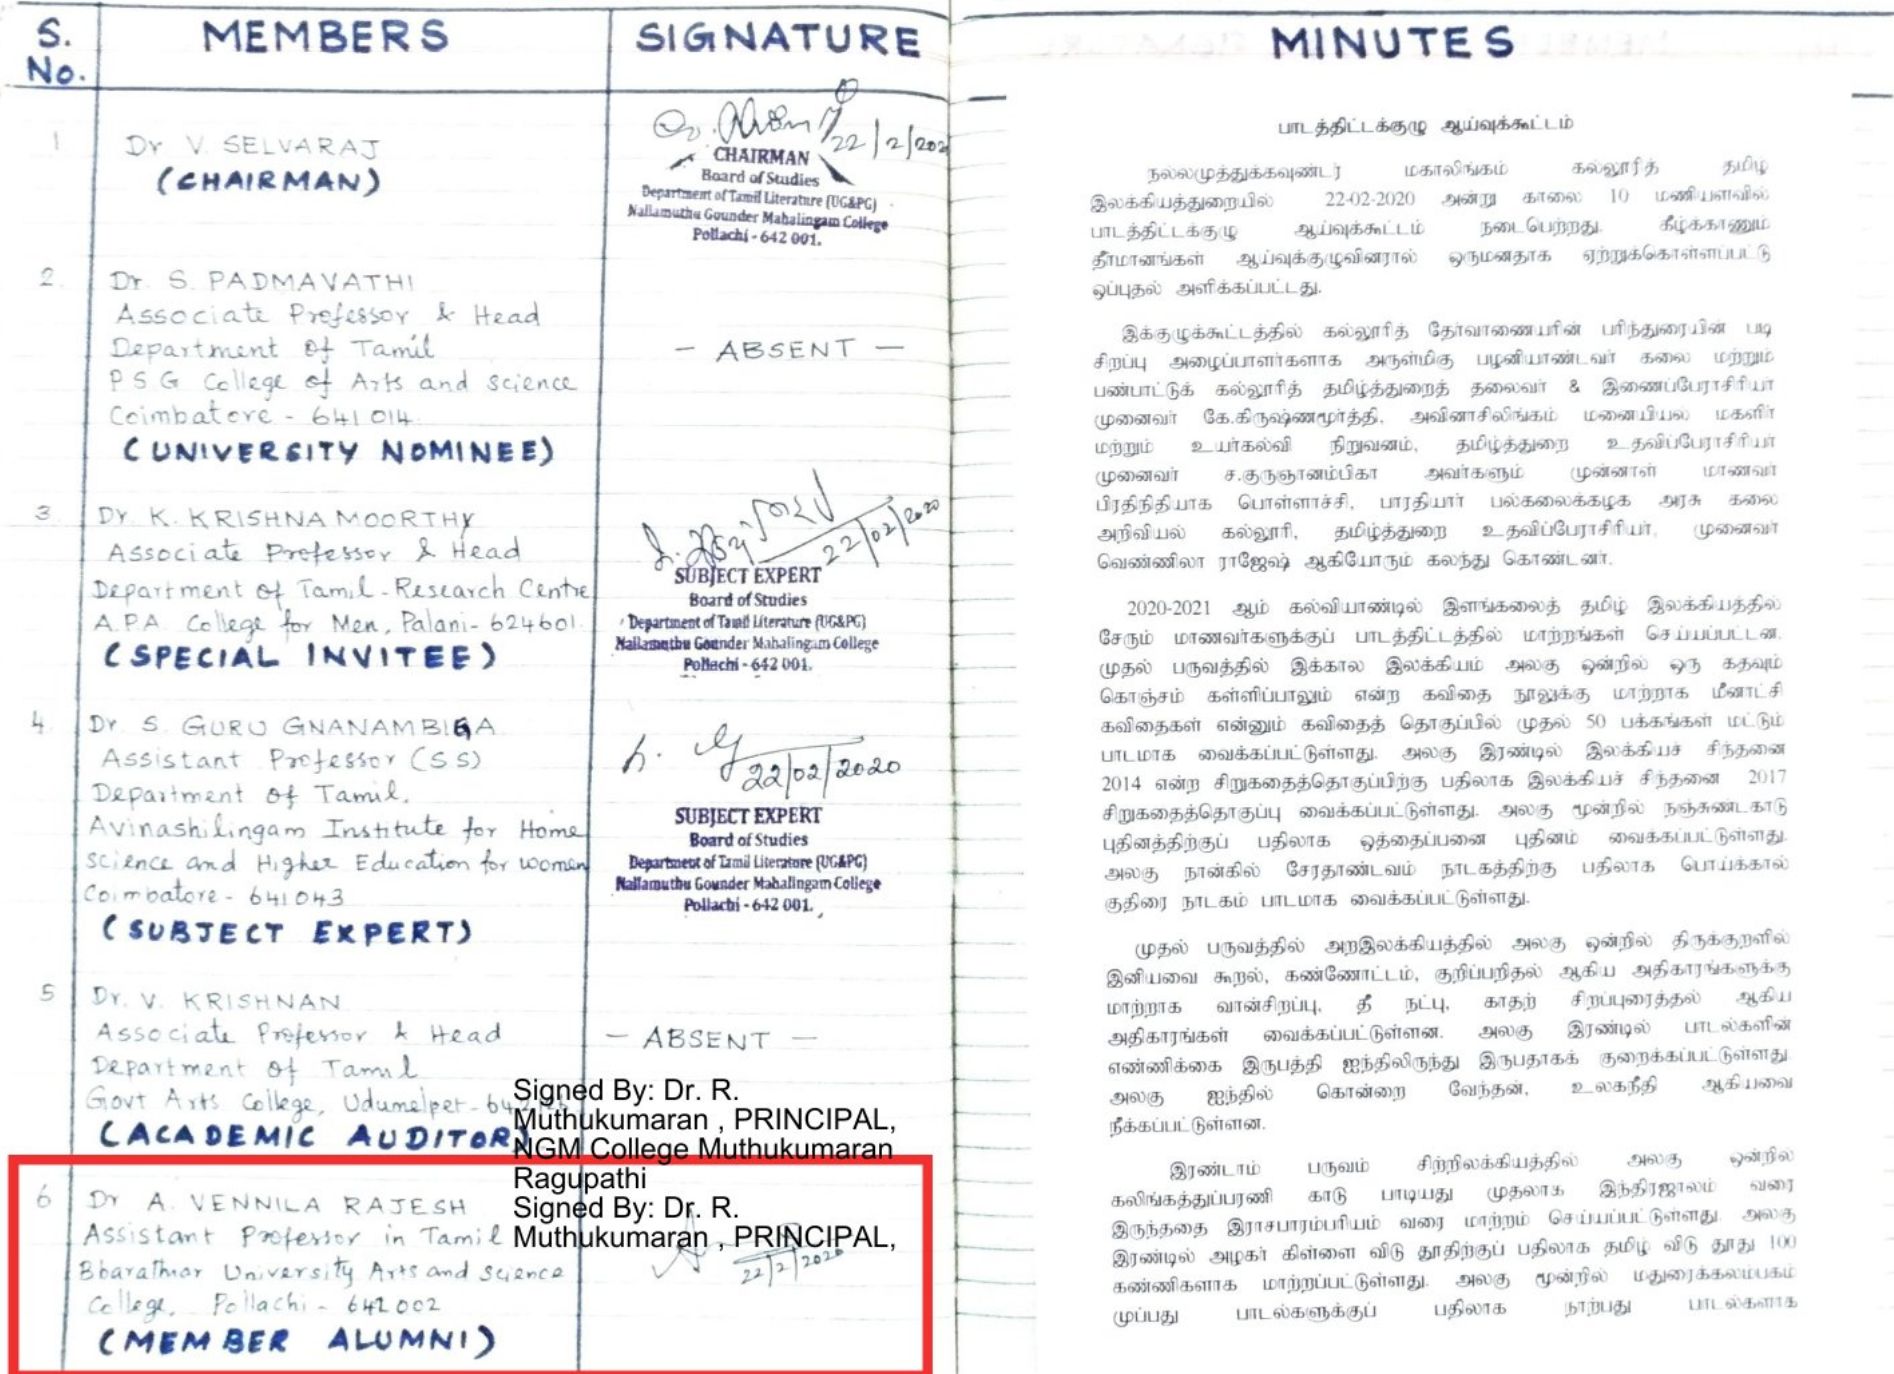 S. No.
MEMBERS
SIGNATURE
1
Dr V. SELVARAJ
(CHAIRMAN)
22/2/202
CHAIRMAN
Board of Studies
Department of Tamil Literature (UG&PG)
Nallamuthu Gounder Mahalingam College
Pollachi - 642 001.
2
Dr. S. PADMAVATHI
Associate Professor & Head
Department of Tamil
PSG College of Arts and science
Coimbatore - 641 014.
(UNIVERSITY NOMINEE)
- ABSENT -
3
Dr. K. KRISHNA MOORTHY
Associate Professor & Head
Department of Tamil - Research Centre
A.P.A. College for Men, Palani - 624601.
(SPECIAL INVITEE)
22/02/2020
SUBJECT EXPERT
Board of Studies
Department of Tamil Literature (UG&PG)
Nallamuthu Gounder Mahalingam College
Pollachi - 642 001.
4.
Dr S. GURU GNANAMBIGA
Assistant Professor (SS)
Department of Tamil.
Avinashilingam Institute for Home
science and Higher Education for women
Coimbatore - 641043
(SUBJECT EXPERT)
22/02/2020
SUBJECT EXPERT
Board of Studies
Department of Tamil Literature (UG&PG)
Nallamuthu Gounder Mahalingam College
Pollachi - 642 001.
5
Dr. V. KRISHNAN
Associate Professor & Head
Department of Tamil
Govt Arts College, Udumalpet -
(ACADEMIC AUDITOR)
- ABSENT -
Signed By: Dr. R.
Muthukumaran , PRINCIPAL,
NGM College Muthukumaran
Ragupathi
Signed By: Dr. R.
Muthukumaran , PRINCIPAL,
6
Dr A. VENNILA RAJESH
Assistant Professor in Tamil
Bharathiar University Arts and science
College, Pollachi - 642 002
(MEMBER ALUMNI)
22/2/2020
MINUTES
பாடத்திட்டக்குழு ஆய்வுக்கூட்டம்
நல்லமுத்துக்கவுண்டர் மகாலிங்கம் கல்லூரித் தமிழ்
இலக்கியத்துறையில் 22-02-2020 அன்று காலை 10 மணியளவில்
பாடத்திட்டக்குழு ஆய்வுக்கூட்டம் நடைபெற்றது. கீழ்க்காணும்
தீர்மானங்கள் ஆய்வுக்குழுவினரால் ஒருமனதாக ஏற்றுக்கொள்ளப்பட்டு
ஒப்புதல் அளிக்கப்பட்டது.
இக்குழுக்கூட்டத்தில் கல்லூரித் தேர்வாணையரின் பரிந்துரையின் படி
சிறப்பு அழைப்பாளர்களாக அருள்மிகு பழனியாண்டவர் கலை மற்றும்
பண்பாட்டுக் கல்லூரித் தமிழ்த்துறைத் தலைவர் & இணைப்பேராசிரியர்
முனைவர் கே.கிருஷ்ணமூர்த்தி, அவினாசிலிங்கம் மனையியல் மகளிர்
மற்றும் உயர்கல்வி நிறுவனம், தமிழ்த்துறை உதவிப்பேராசிரியர்
முனைவர் ச.குருஞானம்பிகா அவர்களும் முன்னாள் மாணவர்
பிரதிநிதியாக பொள்ளாச்சி, பாரதியார் பல்கலைக்கழக அரசு கலை
அறிவியல் கல்லூரி, தமிழ்த்துறை உதவிப்பேராசிரியர், முனைவர்
வெண்ணிலா ராஜேஷ் ஆகியோரும் கலந்து கொண்டனர்.
2020-2021 ஆம் கல்வியாண்டில் இளங்கலைத் தமிழ் இலக்கியத்தில்
சேரும் மாணவர்களுக்குப் பாடத்திட்டத்தில் மாற்றங்கள் செய்யப்பட்டன.
முதல் பருவத்தில் இக்கால இலக்கியம் அலகு ஒன்றில் ஒரு கதவும்
கொஞ்சம் கள்ளிப்பாலும் என்ற கவிதை நூலுக்கு மாற்றாக மீனாட்சி
கவிதைகள் என்னும் கவிதைத் தொகுப்பில் முதல் 50 பக்கங்கள் மட்டும்
பாடமாக வைக்கப்பட்டுள்ளது. அலகு இரண்டில் இலக்கியச் சிந்தனை
2014 என்ற சிறுகதைத்தொகுப்பிற்கு பதிலாக இலக்கியச் சிந்தனை 2017
சிறுகதைத்தொகுப்பு வைக்கப்பட்டுள்ளது. அலகு மூன்றில் நஞ்சுண்டகாடு
புதினத்திற்குப் பதிலாக ஒத்தைப்பனை புதினம் வைக்கப்பட்டுள்ளது.
அலகு நான்கில் சேரதாண்டவம் நாடகத்திற்கு பதிலாக பொய்க்கால்
குதிரை நாடகம் பாடமாக வைக்கப்பட்டுள்ளது.
முதல் பருவத்தில் அறஇலக்கியத்தில் அலகு ஒன்றில் திருக்குறளில்
இனியவை கூறல், கண்ணோட்டம், குறிப்பறிதல் ஆகிய அதிகாரங்களுக்கு
மாற்றாக வான்சிறப்பு, தீ நட்பு, காதற் சிறப்புரைத்தல் ஆகிய
அதிகாரங்கள் வைக்கப்பட்டுள்ளன. அலகு இரண்டில் பாடல்களின்
எண்ணிக்கை இருபத்தி ஐந்திலிருந்து இருபதாகக் குறைக்கப்பட்டுள்ளது.
அலகு ஐந்தில் கொன்றை வேந்தன், உலகநீதி ஆகியவை
நீக்கப்பட்டுள்ளன.
இரண்டாம் பருவம் சிற்றிலக்கியத்தில் அலகு ஒன்றில்
கலிங்கத்துப்பரணி காடு பாடியது முதலாக இந்திரஜாலம் வரை
இருந்ததை இராசபாரம்பரியம் வரை மாற்றம் செய்யப்பட்டுள்ளது. அலகு
இரண்டில் அழகர் கிள்ளை விடு தூதிற்குப் பதிலாக தமிழ் விடு தூது 100
கண்ணிகளாக மாற்றப்பட்டுள்ளது. அலகு மூன்றில் மதுரைக்கலம்பகம்
முப்பது பாடல்களுக்குப் பதிலாக நாற்பது பாடல்களாக